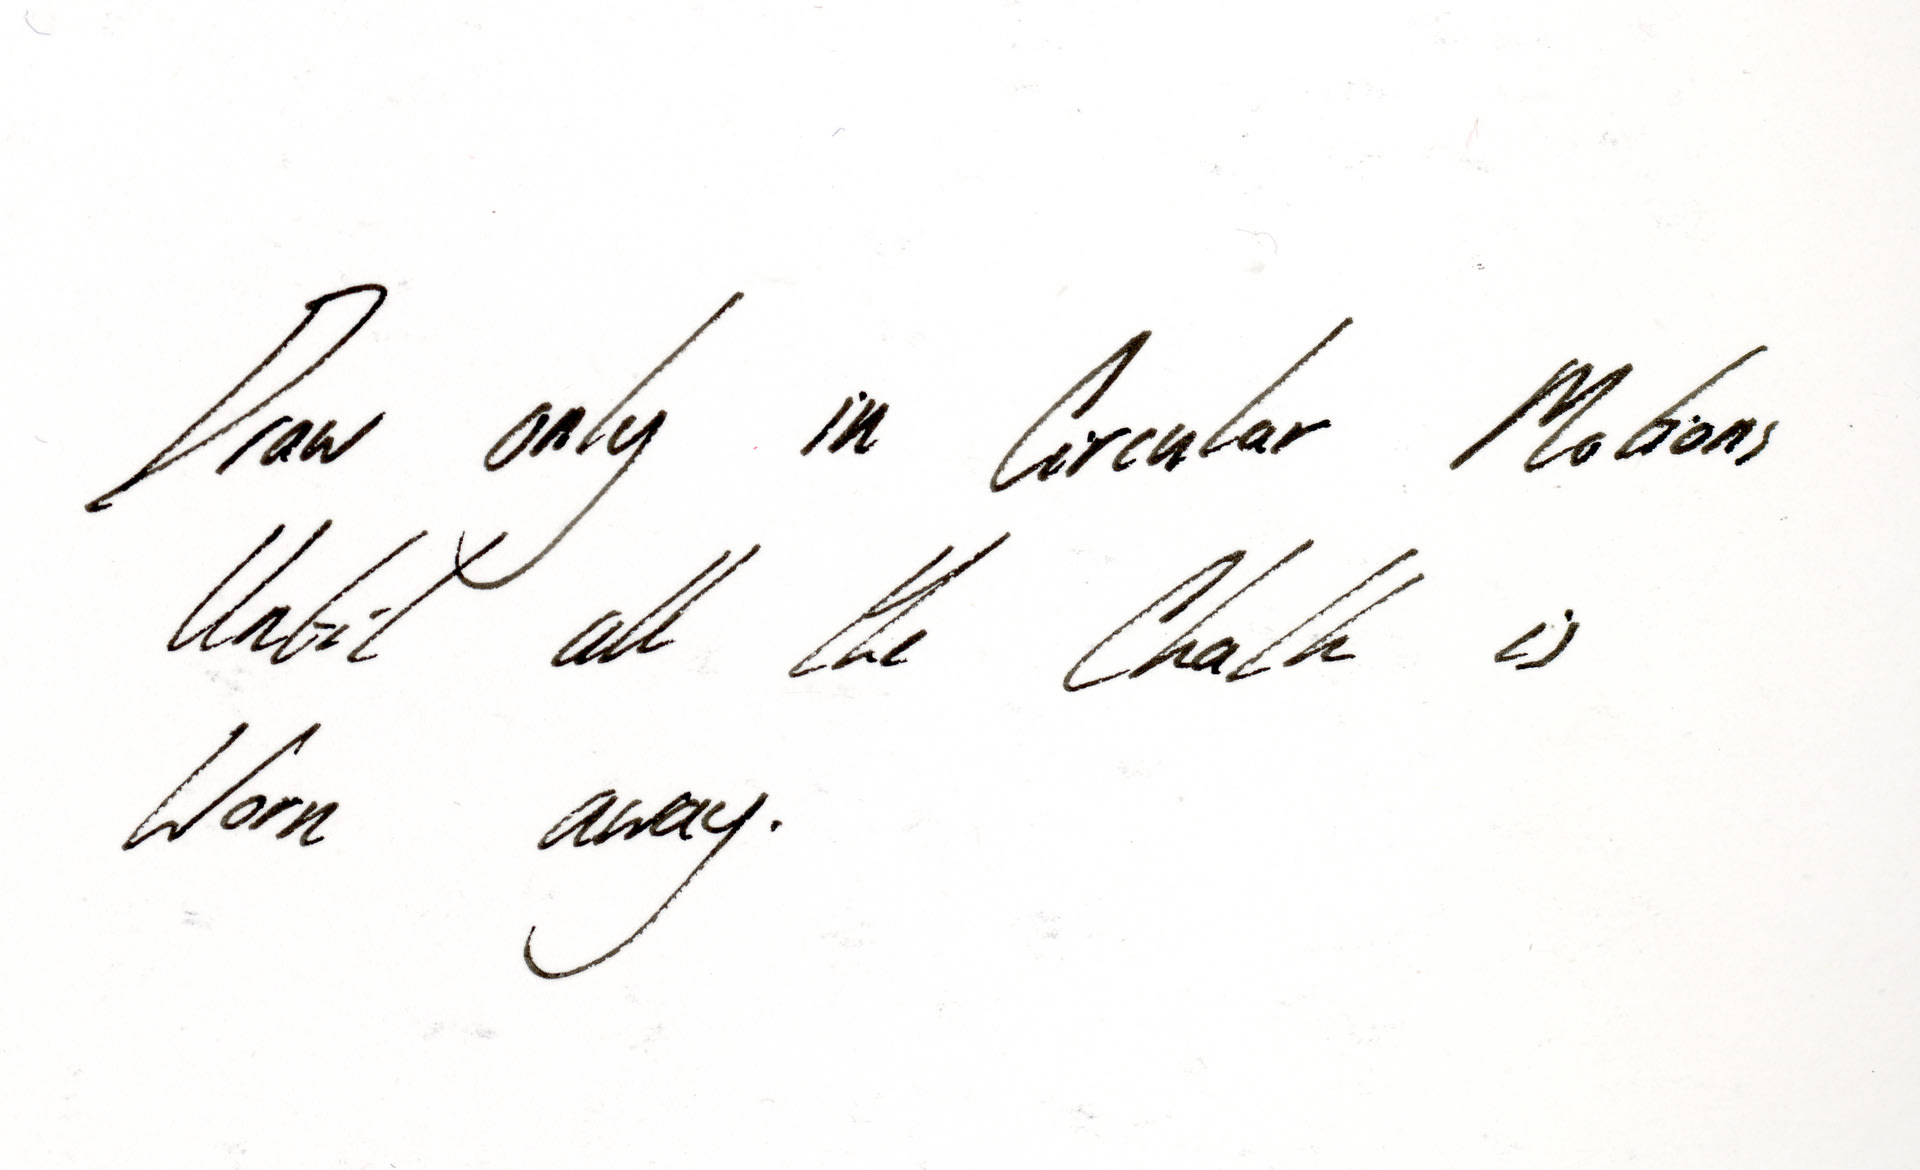 Draw only in Circular Motions
Until all the Chalk is
Worn away.